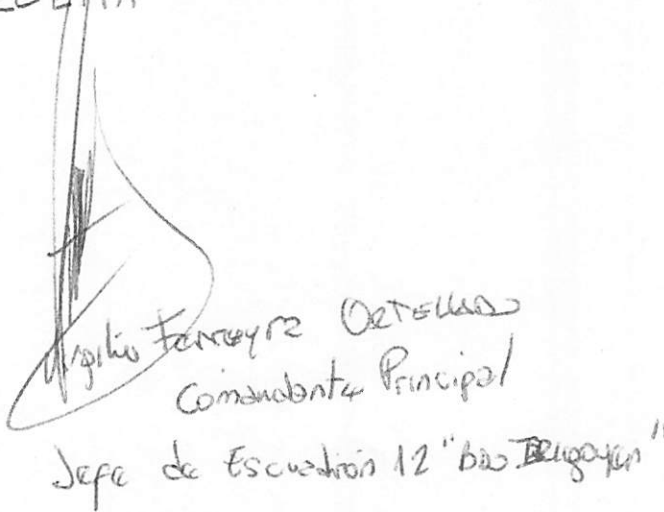 Virgilio Ferreyra ORTELLADO
Comandante Principal
Jefe de Escuadrón 12 "Bdo Irigoyen"